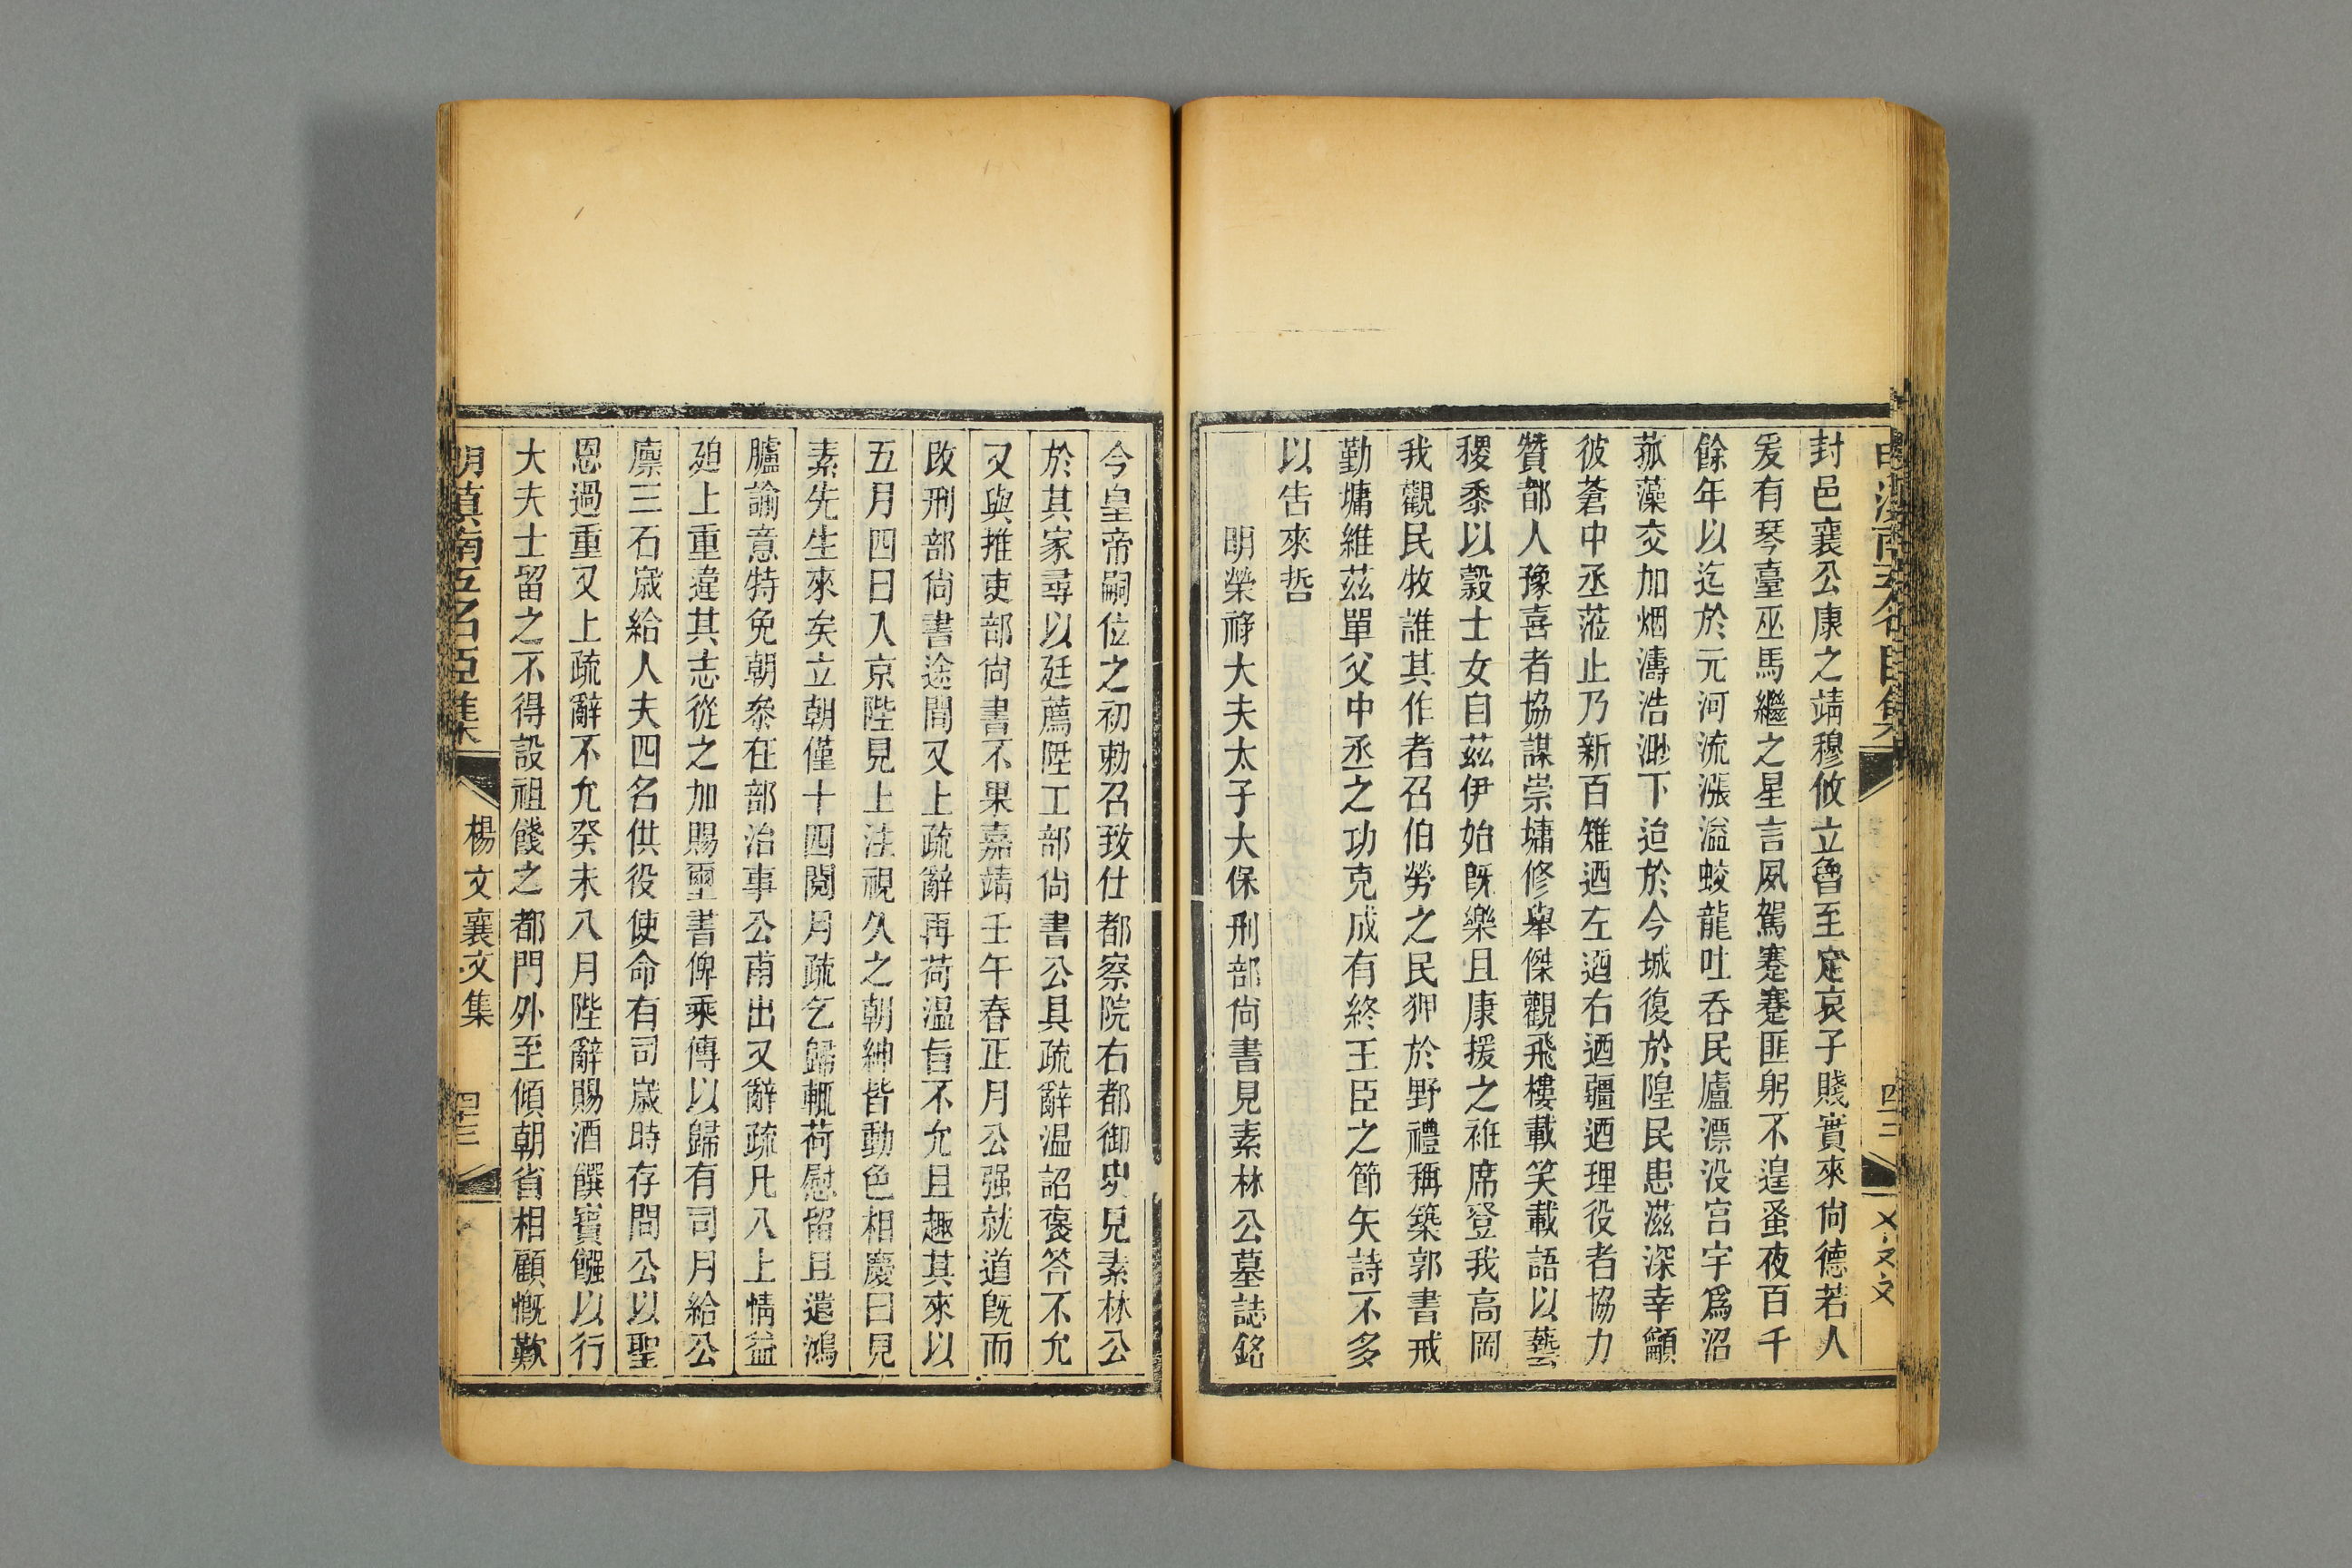 封邑襄公康之靖穆攸立魯至定哀子賤實來尙德若人
爰有琴臺巫馬繼之星言夙駕蹇蹇匪躬不遑蚤夜百千
餘年以迄於元河流漲溢蛟龍吐呑民廬漂没宫宇爲沼
菰藻交加烟濤浩渺下迨於今城復於隍民患滋深幸龥
彼蒼中丞蒞止乃新百雉迺左迺右迺疆迺理役者協力
贊都人豫喜者協謀崇墉修舉傑觀飛樓載笑載語以藝
稷黍以穀士女自茲伊始既樂且康援之袵席登我高岡
我觀民牧誰其作者召伯勞之民狎於野禮稱築郭書戒
勤墉維茲單父中丞之功克成有終王臣之節矢詩不多
以告來哲
明榮祿大夫太子太保刑部尙書見素林公墓誌銘
今皇帝嗣位之初勅召致仕都察院右都御史見素林公
於其家尋以廷薦陞工部尙書公具疏辭温詔褒答不允
又與推吏部尙書不果嘉靖壬午春正月公强就道既而
改刑部尙書途間又上疏辭再荷温旨不允且趣其來以
五月四日入京陛見上注視久之朝紳皆動色相慶曰見
素先生來矣立朝僅十四閱月疏乞歸輒荷慰留且遣鴻
臚諭意特免朝叅在部治事公甫出又辭疏凡八上情益
廹上重違其志從之加賜璽書俾乘傳以歸有司月給公
廪三石歲給人夫四名供役使命有司歲時存問公以聖
恩過重又上疏辭不允癸未八月陛辭賜酒饌寳鏹以行
大夫士留之不得設祖餞之都門外至傾朝省相顧慨歎
明滇南五名臣集
楊文襄文集
四三